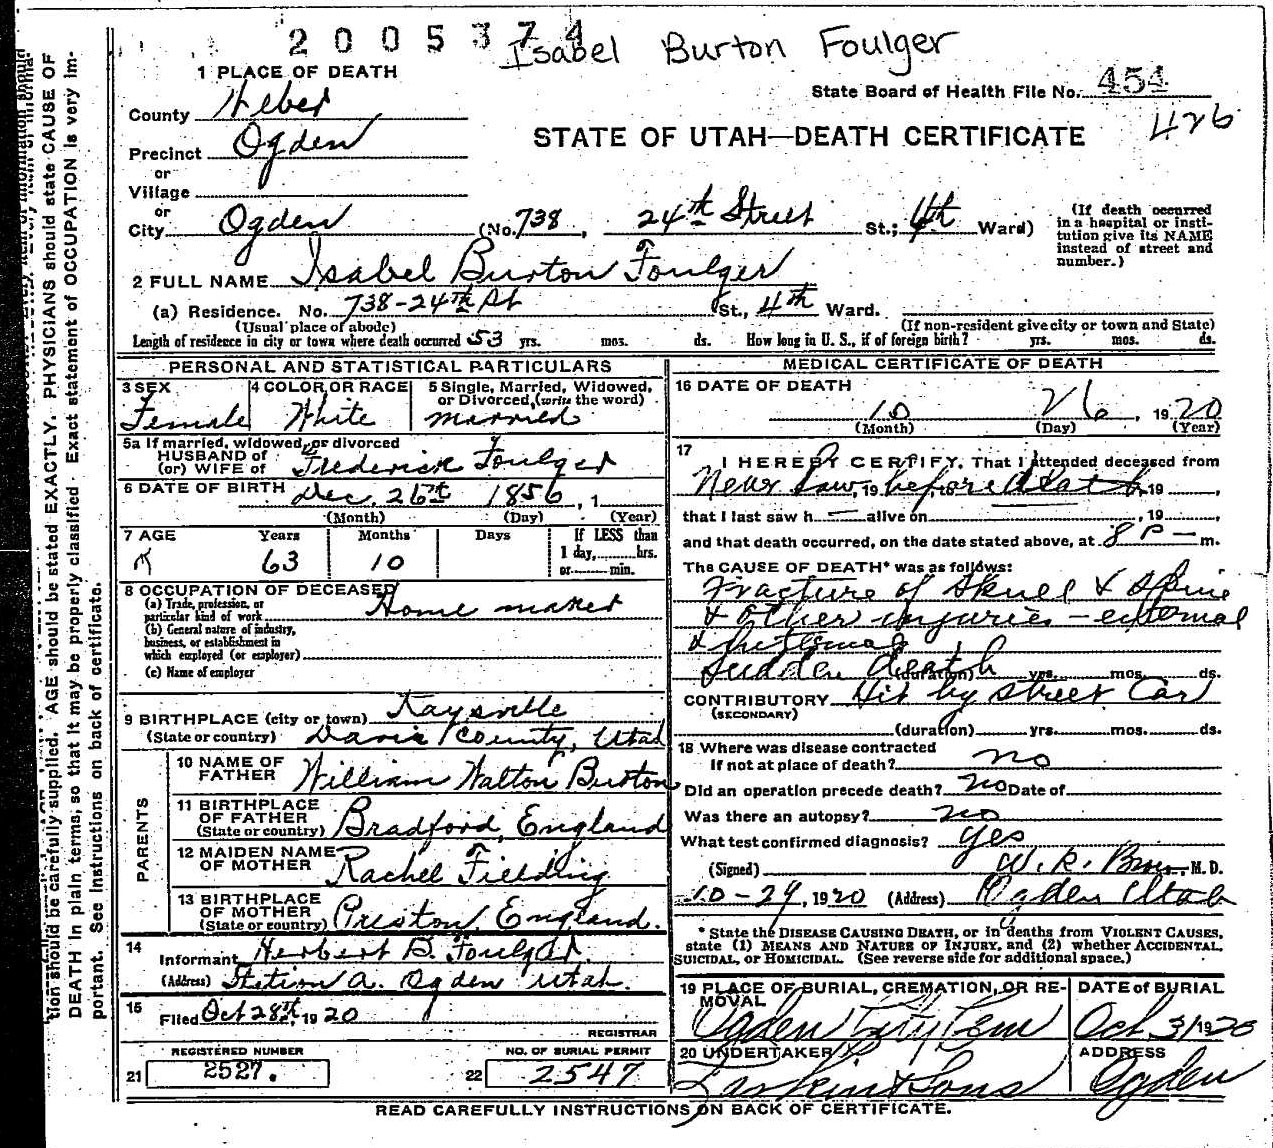 2005374
Isabel Burton Foulger
1 PLACE OF DEATH
State Board of Health File No. 454
County Weber
426
STATE OF UTAH—DEATH CERTIFICATE
Precinct Ogden
or
Village
or
City Ogden (No. 738, 24th Street St.; 4th Ward)
(If death occurred in a hospital or institution give its NAME instead of street and number.)
2 FULL NAME Isabel Burton Foulger
(a) Residence. No. 738-24th St St., 4th Ward.
(Usual place of abode) (If non-resident give city or town and State)
Length of residence in city or town where death occurred 53 yrs. mos. ds. How long in U. S., if of foreign birth? yrs. mos. ds.
PERSONAL AND STATISTICAL PARTICULARS
3 SEX 4 COLOR OR RACE 5 Single, Married, Widowed,
or Divorced, (write the word)
Female White married
5a If married, widowed, or divorced
HUSBAND of
(or) WIFE of Frederick Foulger
6 DATE OF BIRTH Dec. 26th 1856, 1
(Month) (Day) (Year)
7 AGE Years Months Days If LESS than
1 day, hrs.
or min.
63 10
8 OCCUPATION OF DECEASED
(a) Trade, profession, or
particular kind of work Home maker
(b) General nature of industry,
business, or establishment in
which employed (or employer)
(c) Name of employer
9 BIRTHPLACE (city or town) Kaysville
(State or country) Davis County, Utah
PARENTS
10 NAME OF
FATHER William Walton Burton
11 BIRTHPLACE
OF FATHER
(State or country) Bradford, England
12 MAIDEN NAME
OF MOTHER Rachel Fielding
13 BIRTHPLACE
OF MOTHER
(State or country) Preston, England.
14
Informant Herbert B. Foulger.
(Address) Station A. Ogden Utah.
15
Filed Oct 28th, 1920
REGISTRAR
REGISTERED NUMBER NO. OF BURIAL PERMIT
21 2527. 22 2547
MEDICAL CERTIFICATE OF DEATH
16 DATE OF DEATH
10 26, 1920
(Month) (Day) (Year)
17
I HEREBY CERTIFY, That I attended deceased from
Never Saw, 19 before, to death 19,
that I last saw h — alive on , 19 ,
and that death occurred, on the date stated above, at 8 P — m.
The CAUSE OF DEATH* was as follows:
Fracture of Skull & Spine
& other injuries — external
& Internal
Sudden death (duration) yrs. mos. ds.
CONTRIBUTORY Hit by Street Car
(SECONDARY)
(duration) yrs. mos. ds.
18 Where was disease contracted
If not at place of death? no
Did an operation precede death? no Date of
Was there an autopsy? no
What test confirmed diagnosis? yes
(Signed) W. R. M. D.
10-29, 1920 (Address) Ogden Utah
* State the DISEASE CAUSING DEATH, or in deaths from VIOLENT CAUSES,
state (1) MEANS AND NATURE OF INJURY, and (2) whether ACCIDENTAL,
SUICIDAL, or HOMICIDAL. (See reverse side for additional space.)
19 PLACE OF BURIAL, CREMATION, OR RE-
MOVAL
Ogden City Cem
DATE of BURIAL
Oct 31 1920
20 UNDERTAKER
Larkin & Sons
ADDRESS
Ogden
READ CAREFULLY INSTRUCTIONS ON BACK OF CERTIFICATE.
tion should be carefully supplied. AGE should be stated EXACTLY. PHYSICIANS should state CAUSE OF
DEATH in plain terms, so that it may be properly classified. Exact statement of OCCUPATION is very im-
portant. See instructions on back of certificate.